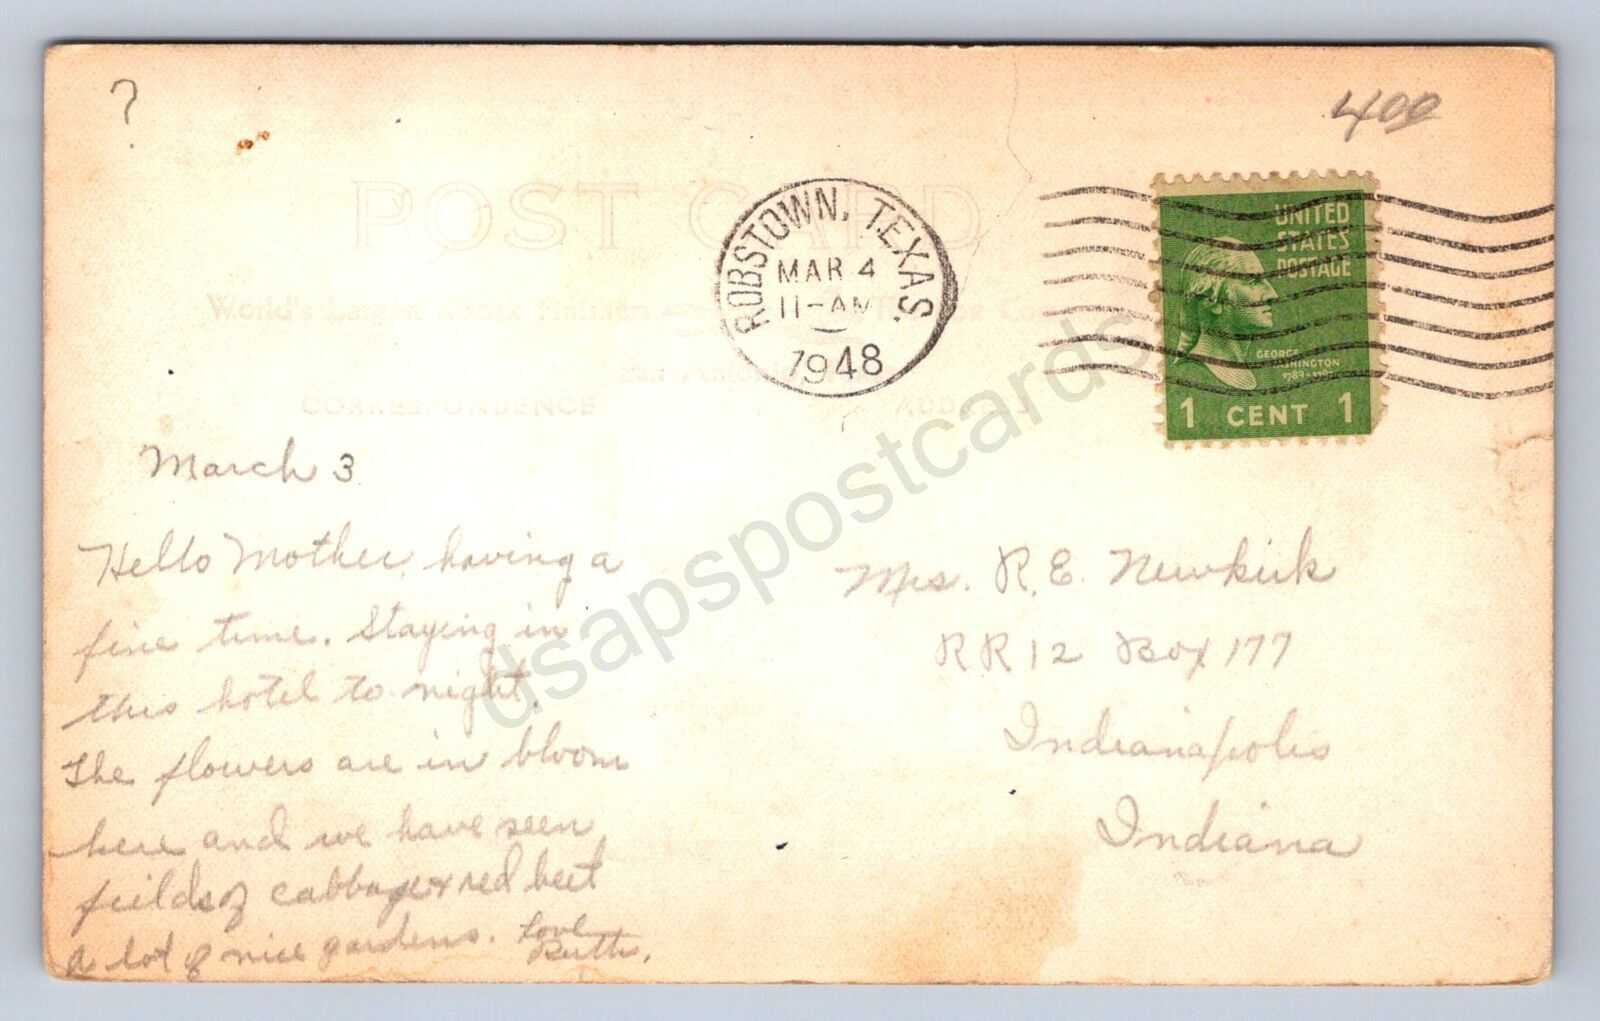 ?
400
POST CARD
ROBSTOWN, TEXAS.
MAR 4
11-AM
1948
UNITED
STATES
POSTAGE
GEORGE
WASHINGTON
1 CENT 1
World's Largest Kodak Finishers
San Antonio
CORRESPONDENCE
ADDRESS
March 3
Hello Mother, having a
fine time. Staying in
this hotel to night.
The flowers are in bloom
here and we have seen
fields of cabbage & red beet
a lot of nice gardens. Love
Ruth.
Mrs. R. E. Newkirk
RR 12 Box 177
Indianapolis
Indiana
dsapspostcards